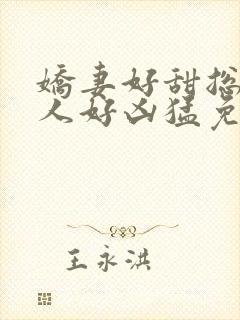 嬌妻好甜總
人好凶猛免
王永洪